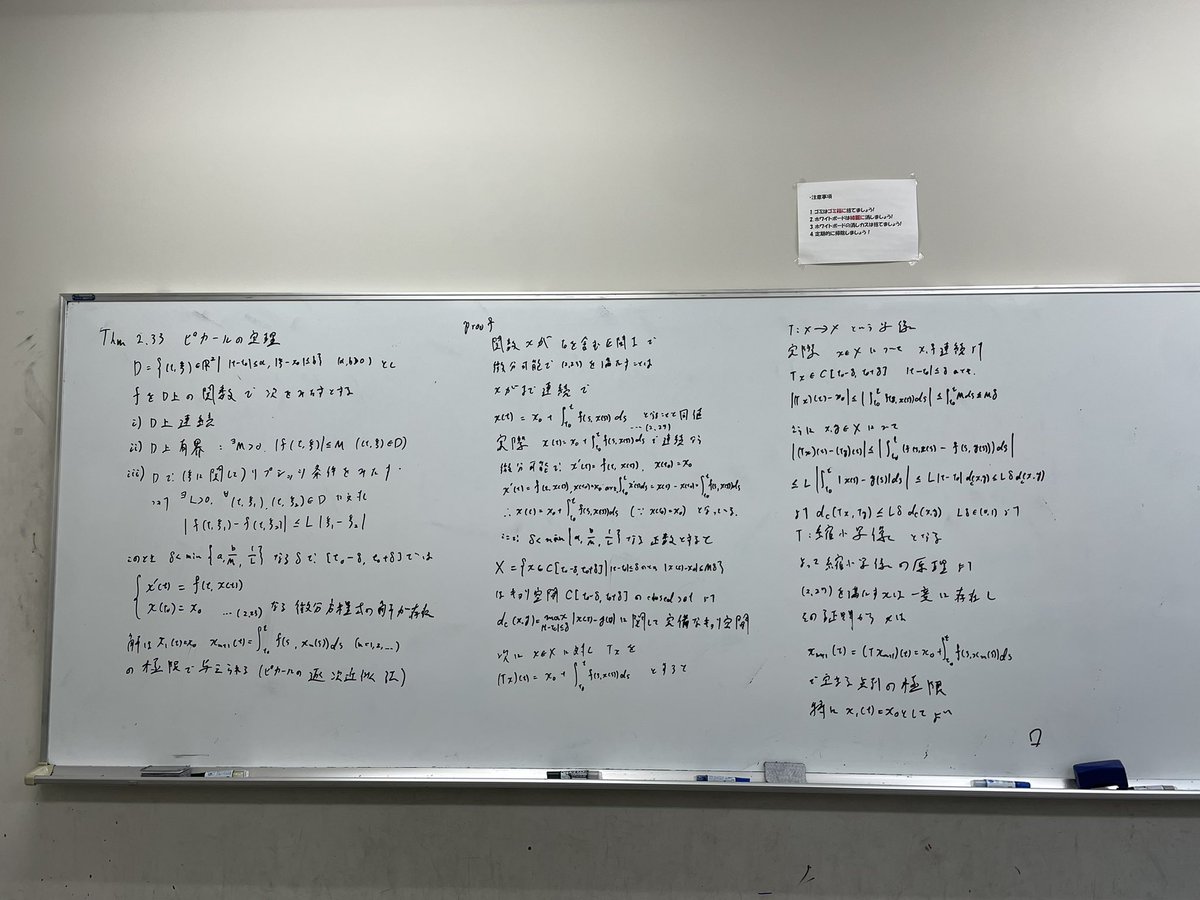 ・注意事項
1 ゴミはゴミ箱に捨てましょう!
2 ホワイトボードは綺麗に消しましょう!
3 ホワイトボードの消しカスは捨てましょう!
4 定期的に掃除しましょう!
Thm 2.33 ピカールの定理
D = {(t, ξ) ∈ ℝ² | |t-t₀| ≤ a, |ξ-x₀| ≤ b} (a, b>0) とし
fをD上の関数で次をみたすとする
i) D上連続
ii) D上有界 : ∃M>0 |f(t, ξ)| ≤ M ((t, ξ) ∈ D)
iii) Dで(ξに関して)リプシッツ条件をみたす.
∃L>0, ∀(t, ξ₁), (t, ξ₂) ∈ D に対し
|f(t, ξ₁) - f(t, ξ₂)| ≤ L|ξ₁ - ξ₂|
このとき δ < min{a, b/M, 1/L} なるδで [t₀-δ, t₀+δ] では
{ x'(t) = f(t, x(t))
x(t₀) = x₀ … (2,25) なる微分方程式の解が一意存在
解は x₁(t)=x₀ xₙ₊₁(t) = ∫_{t₀}^{t} f(s, xₙ(s))ds (n=1,2,…)
の極限で与えられる (ピカールの逐次近似法)
proof
関数xが t₀を含む区間Iで
微分可能で (2,25) を満たすことは
xがIで連続で
x(t) = x₀ + ∫_{t₀}^{t} f(s, x(s))ds … (2,27) となることと同値
実際 x(t) = x₀ + ∫_{t₀}^{t} f(s, x(s))ds で連続なら
微分可能で x'(t) = f(t, x(t)), x(t₀) = x₀
x'(t) = f(t, x(t)), x(t₀)=x₀ ∫_{t₀}^{t} x'(s)ds = x(t) - x(t₀) = ∫_{t₀}^{t} f(s, x(s))ds
∴ x(t) = x₀ + ∫_{t₀}^{t} f(s, x(s))ds (∵ x(t₀) = x₀) となっている.
δ < min{a, b/M, 1/L} なる正数として
X = {x ∈ C[t₀-δ, t₀+δ] | |t-t₀| ≤ δ |x(t)-x₀| ≤ Mδ}
はキョリ空間 C[t₀-δ, t₀+δ] の closed set より
d_c(x, y) = max_{|t-t₀|≤δ} |x(t) - y(t)| に関して完備なキョリ空間
次に x ∈ X に対し Tx を
(Tx)(t) = x₀ + ∫_{t₀}^{t} f(s, x(s))ds とすると
T: X → X という写像
実際 x ∈ X について x, f 連続より
Tx ∈ C[t₀-δ, t₀+δ] |t-t₀| ≤ δ
|(Tx)(t) - x₀| ≤ |∫_{t₀}^{t} f(s, x(s))ds| ≤ |∫_{t₀}^{t} M ds| ≤ Mδ
x, y ∈ X について
|(Tx)(t) - (Ty)(t)| ≤ |∫_{t₀}^{t} (f(s, x(s)) - f(s, y(s)))ds|
≤ L|∫_{t₀}^{t} |x(s) - y(s)|ds| ≤ L|t-t₀| d_c(x, y) ≤ Lδ d_c(x, y)
より d_c(Tx, Ty) ≤ Lδ d_c(x, y) Lδ ∈ (0, 1) より
T: 縮小写像 となる
よって縮小写像の原理より
(2,27) を満たす xは一意に存在し
その証明から xは
xₙ₊₁(t) = (Txₙ)(t) = x₀ + ∫_{t₀}^{t} f(s, xₙ(s))ds
で定まる点列の極限
特に x₁(t) = x₀としてよい